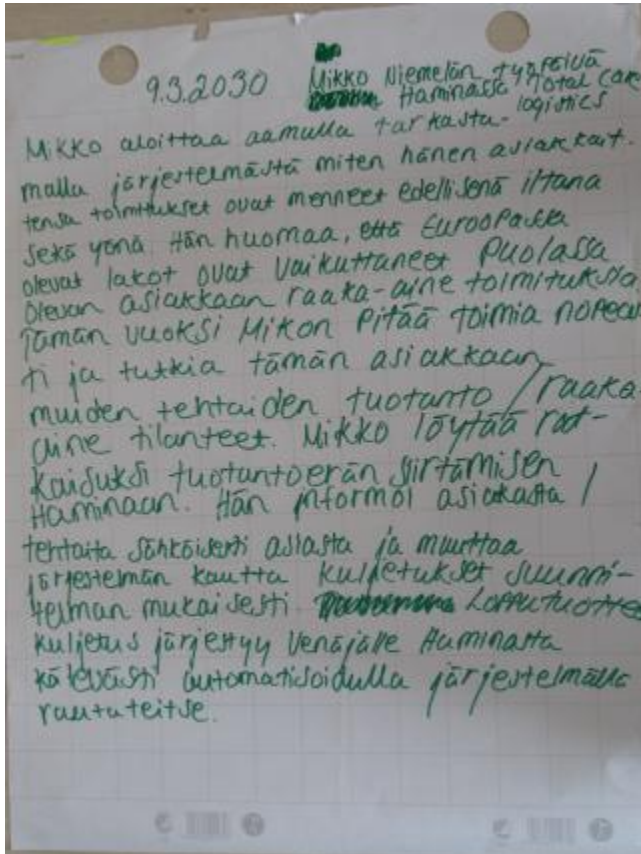 9.3.2030 Mikko Niemelän työpäivä
Haminassa Total care
logistics
Mikko aloittaa aamulla tarkasta-
malla järjestelmästä miten hänen asiakkait-
tensa toimitukset ovat menneet edellisenä iltana
sekä yönä. Hän huomaa, että Euroopassa
olevat lakot ovat vaikuttaneet Puolassa
olevan asiakkaan raaka-aine toimituksia
Tämän vuoksi Mikon pitää toimia nopeas
ti ja tutkia tämän asiakkaan
muiden tehtaiden tuotanto / raaka-
aine tilanteet. Mikko löytää rat-
kaisuksi tuotantoerän siirtämisen
Haminaan. Hän informoi asiakasta /
tehtaita sähköisesti asiasta ja muuttaa
järjestelmän kautta kuljetukset suunni-
telman mukaisesti Lopputuotte
kuljetus järjestyy Venäjälle Haminasta
kätevästi automatisoidulla järjestelmällä
rautateitse.